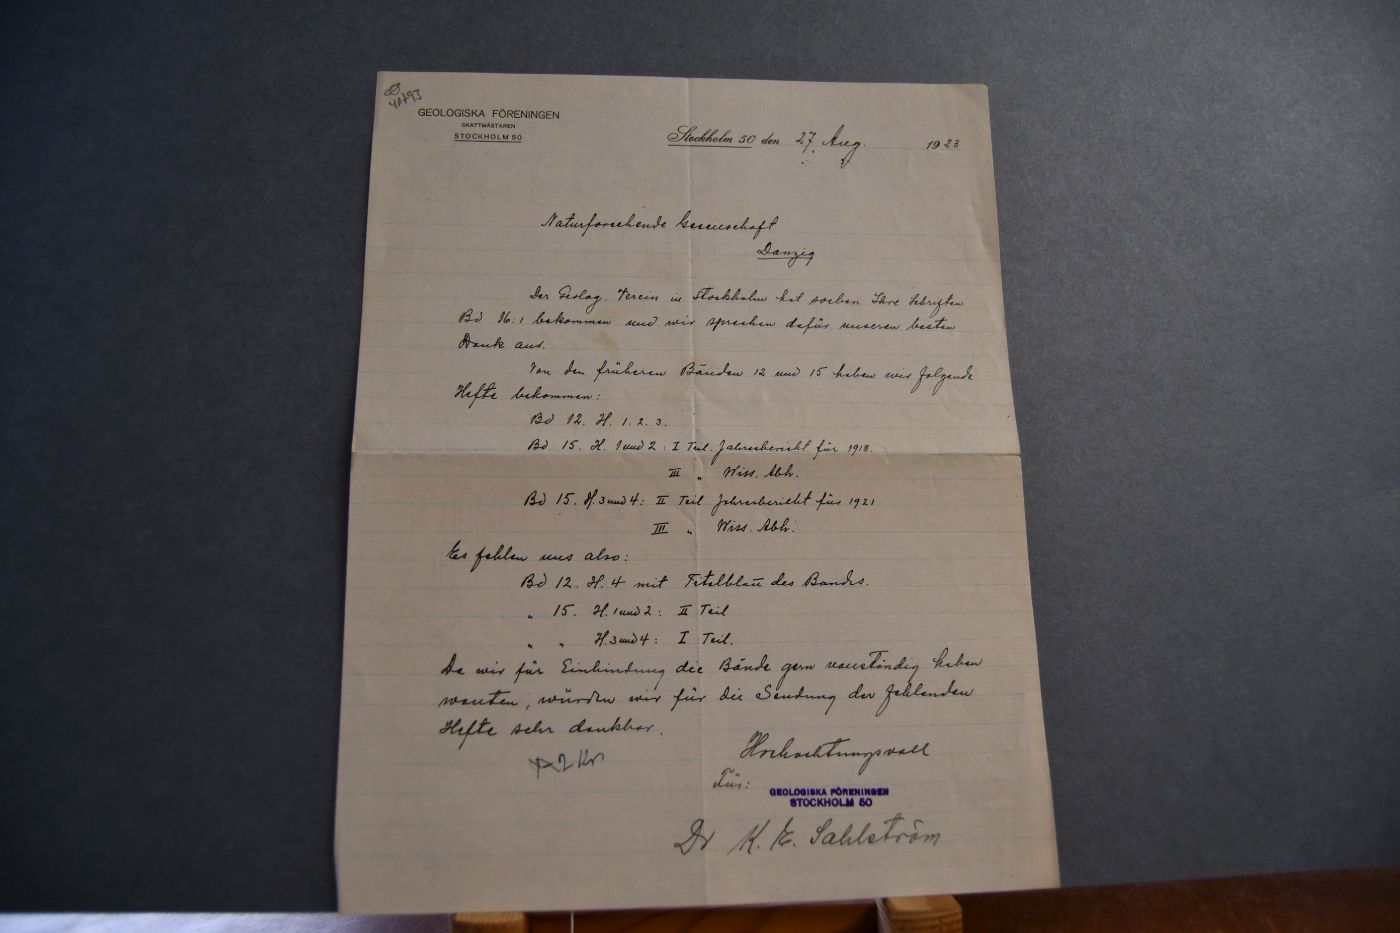 GEOLOGISKA FÖRENINGEN
SKATTMÄSTAREN
STOCKHOLM 50
Stockholm 50 den 27 Aug. 1923
Naturforschende Gesellschaft
Danzig
Der Geolog. Verein in Stockholm hat soeben Ihre Schriften
Bd 16:1 bekommen und wir sprechen dafür unseren besten
Dank aus.
Von den früheren Bänden 12 und 15 haben wir folgende
Hefte bekommen:
Bd 12. H. 1. 2. 3.
Bd 15. H. 1 und 2: I Teil. Jahresbericht für 1918.
III " Wiss. Abh.
Bd 15. H. 3 und 4: II Teil Jahresbericht für 1921
III " Wiss. Abh.
Es fehlen uns also:
Bd 12. H. 4 mit Titelblatt des Bandes.
" 15. H. 1 und 2: II Teil
" " H. 3 und 4: I Teil.
Da wir für Einbindung die Bände gern vollständig haben
wollten, würden wir für die Sendung der fehlenden
Hefte sehr dankbar.
Hochachtungsvoll
Für:
GEOLOGISKA FÖRENINGEN
STOCKHOLM 50
Dr K. E. Sahlström